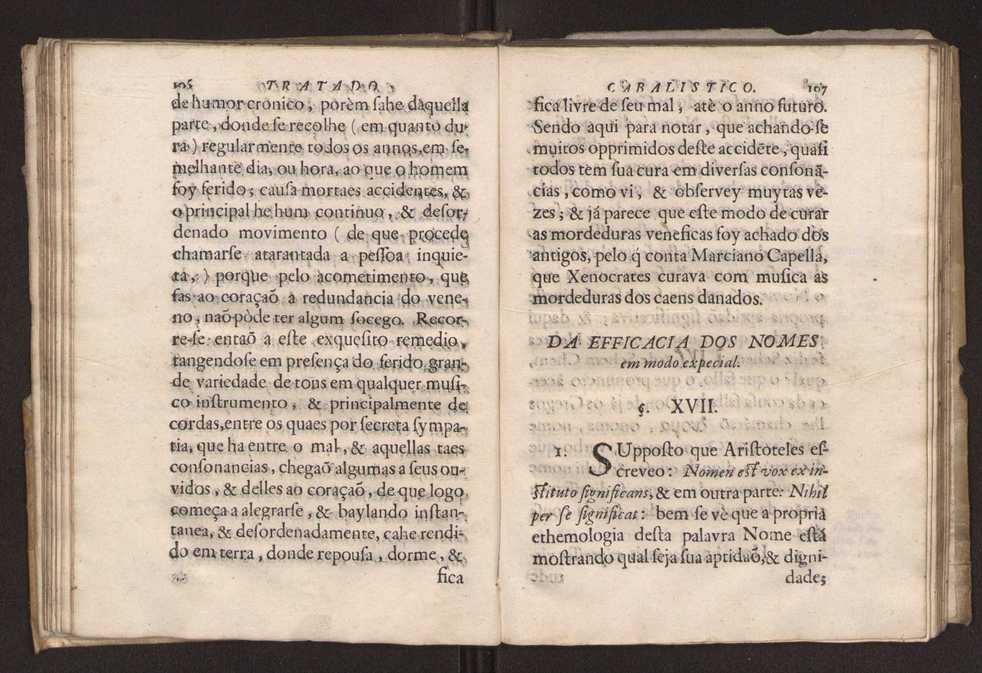 106 TRATADO
de humor crónico, porèm sahe daquella
parte, donde se recolhe (em quanto du-
ra) regularmente todos os annos, em se-
melhante dia, ou hora, ao que o homem
foy ferido; causa mortaes accidentes, &
o principal he hum continuo, & desor-
denado movimento (de que procede
chamarse atarantada a pessoa inquie-
ta,) porque pelo àcometimento, que
fas ao coraçaõ a redundancia do vene-
no, naõ pòde ter algum socego. Recor-
re-se entaõ a este exquesito remedio,
tangendose em presença do ferido gran-
de variedade de tons em qualquer musi-
co instrumento, & principalmente de
cordas, entre os quaes por secreta sympa-
tia, que ha entre o mal, & aquellas taes
consonancias, chegaõ algumas a seus ou-
vidos, & delles ao coraçaõ, de que logo
começa a alegrarse, & baylando instan-
tanea, & desordenadamente, cahe rendi-
do em terra, donde repousa, dorme, &
fica
CABALISTICO. 107
fica livre de seu mal, atè o anno futuro.
Sendo aqui para notar, que achando-se
muitos opprimidos deste accidẽte, quasi
todos tem sua cura em diversas consonã-
cias, como vi, & observey muytas ve-
zes; & já parece que este modo de curar
as mordeduras veneficas foy achado dos
antigos, pelo q̃ conta Marciano Capella,
que Xenocrates curava com musica as
mordeduras dos caens danados.
DA EFFICACIA DOS NOMES
em modo expecial.
ç. XVII.
1. SUpposto que Aristoteles es-
creveo: Nomen est vox ex in-
stituto significans, & em outra parte: Nihil
per se significat: bem se vè que a propria
ethemologia desta palavra Nome està
mostrando qual seja sua aptidaõ, & digni-
dade;